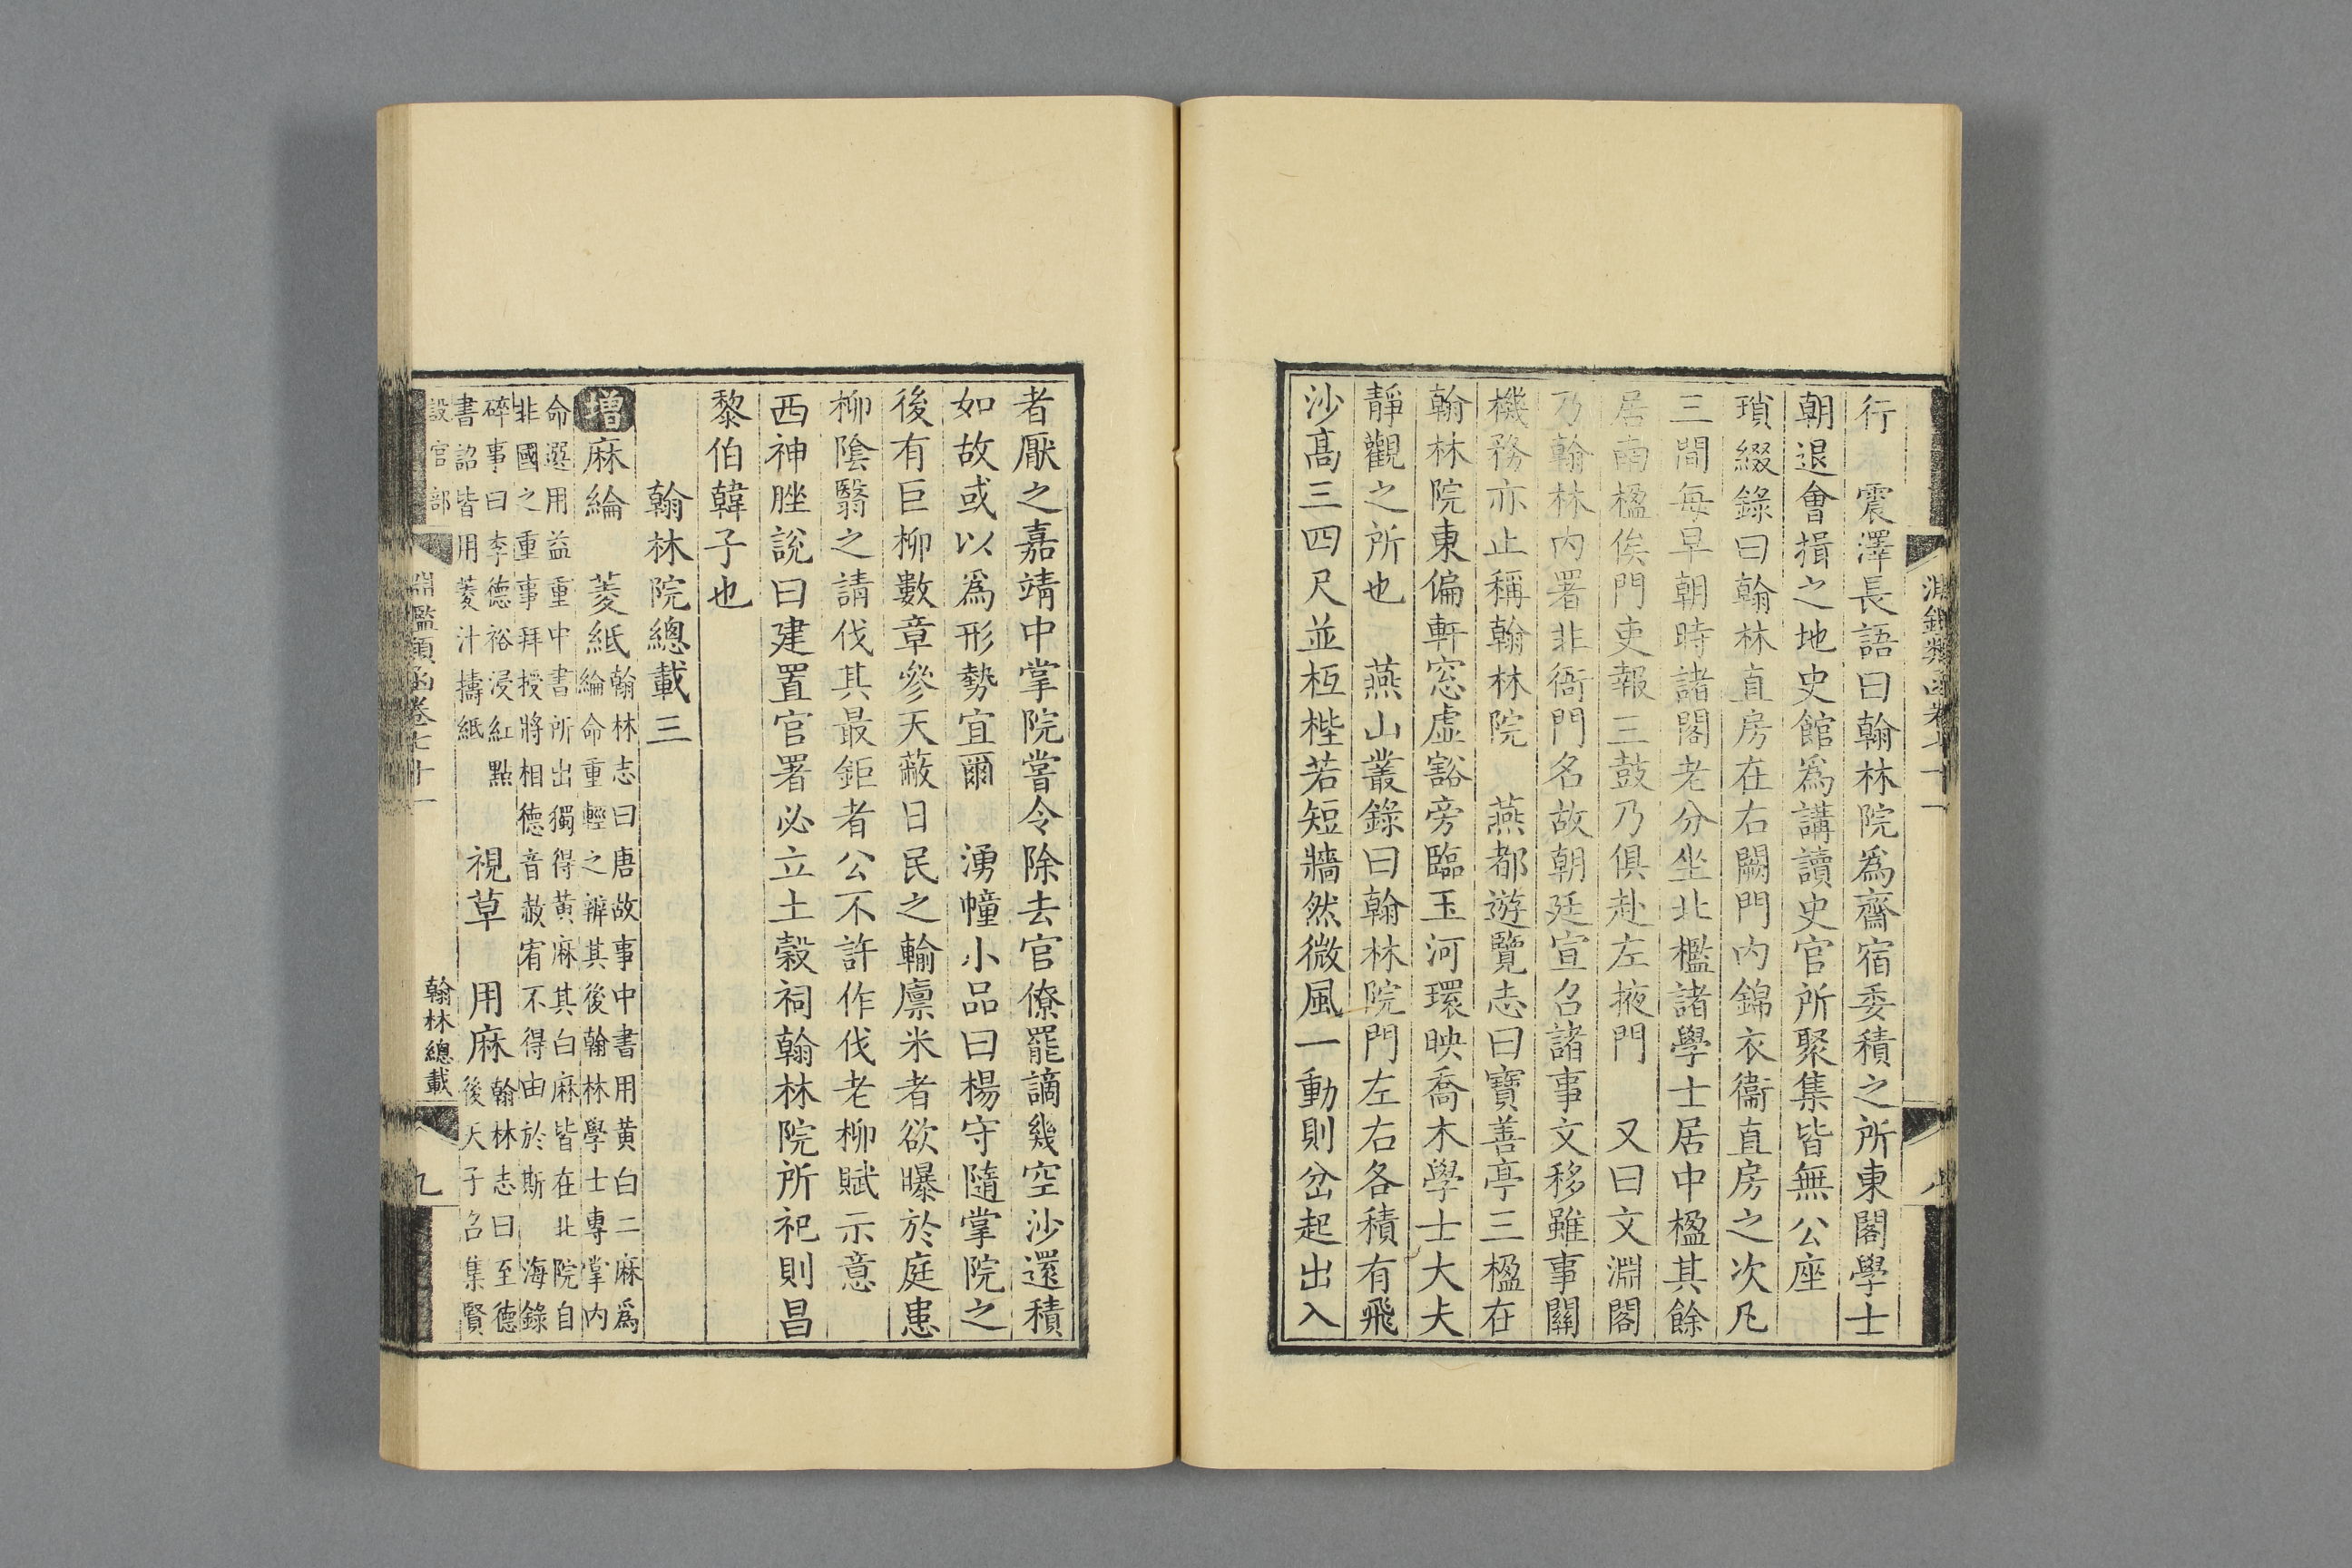 行　震澤長語曰翰林院爲齋宿委積之所東閣學士
朝退會揖之地史館爲講讀史官所聚集皆無公座
瑣綴錄曰翰林直房在右闕門内錦衣衞直房之次凡
三間每早朝時諸閣老分坐北檻諸學士居中楹其餘
居南楹俟門吏報三鼓乃俱赴左掖門　又曰文淵閣
乃翰林内署非衙門名故朝廷宣召諸事文移雖事關
機務亦止稱翰林院　燕都遊覽志曰寶善亭三楹在
翰林院東偏軒窓虛豁旁臨玉河環映喬木學士大夫
靜觀之所也　燕山叢錄曰翰林院門左右各積有飛
沙高三四尺並枑梐若短牆然微風一動則坌起出入
者厭之嘉靖中掌院嘗令除去官僚罷謫幾空沙還積
如故或以爲形勢宜爾　湧幢小品曰楊守隨掌院之
後有巨柳數章參天蔽日民之輸廪米者欲曝於庭患
柳陰翳之請伐其最鉅者公不許作伐老柳賦示意
西神脞說曰建置官署必立土榖祠翰林院所祀則昌
黎伯韓子也
翰林院總載三
增麻綸　菱紙翰林志曰唐故事中書用黄白二麻爲
綸命重輕之辨其後翰林學士專掌内
命選用益重中書所出獨得黄麻其白麻皆在北院自
非國之重事拜授將相德音赦宥不得由於斯　海錄
碎事曰李德裕浸紅點
書詔皆用菱汁擣紙　視草　用麻翰林志曰至德
後天子召集賢
設官部　淵鑑類函卷七十一　翰林總載　九